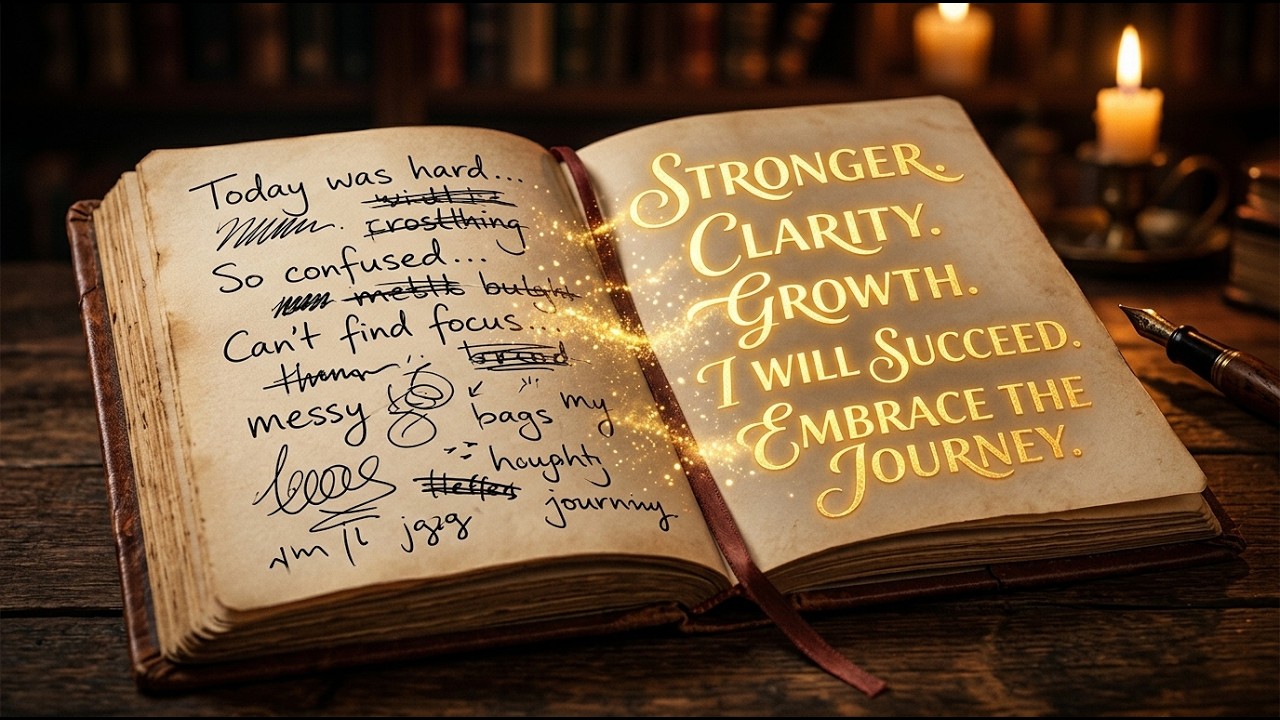 Today was hard...
crostthing
So confused...
mettb bulght
Can't find focus...
messy
bags my
houghtj
journiny
jgzg
STRONGER.
CLARITY.
GROWTH.
I WILL SUCCEED.
EMBRACE THE
JOURNEY.